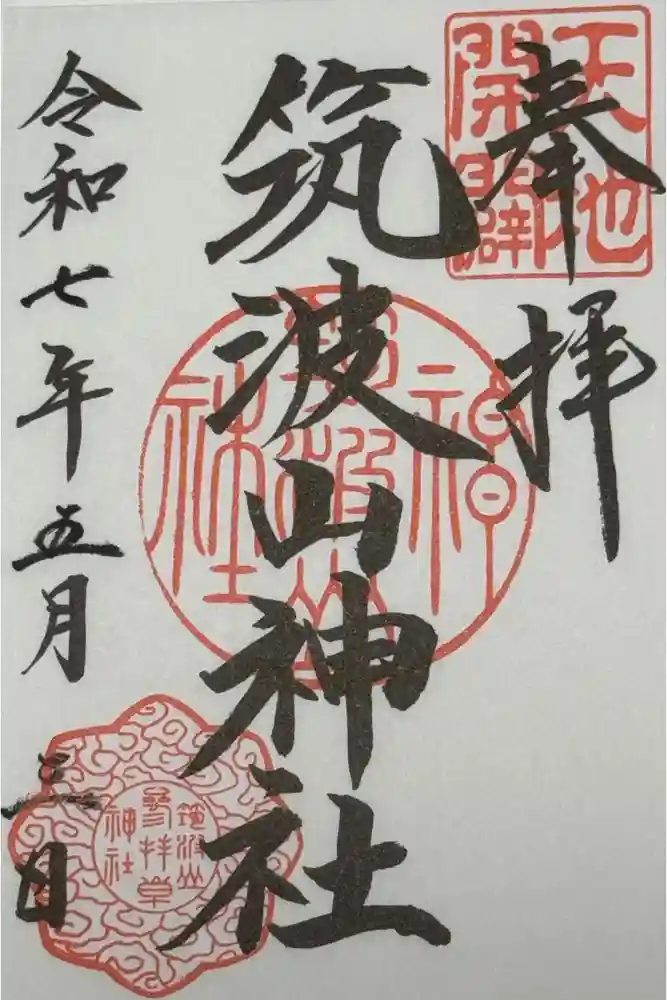 奉拝
天地
開闢
筑波山神社
筑波山
神社
令和七年五月三日
筑波山
参拝章
神社